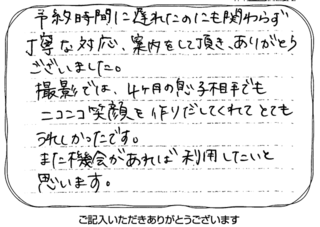 予約時間に遅れたのにも関わらず
丁寧な対応、案内をして頂き、ありがとう
ございました。
撮影では、4ヶ月の息子相手でも
ニコニコ笑顔を作りだしてくれてとても
うれしかったです。
また機会があれば利用したいと
思います。
ご記入いただきありがとうございます